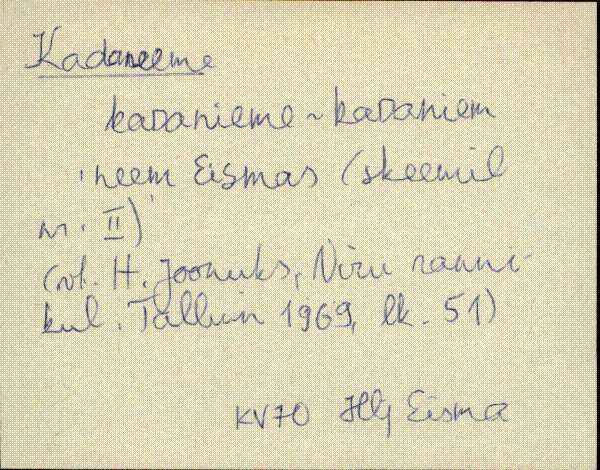 Kadaneeme
kaDanieme ~ kaDaniem
'neem Eismas (skeemil
nr. II)'
(vt. H. Joonuks, Viru ranni-
kul. Tallinn 1969, lk. 51)
KV70 Hlj Eisma